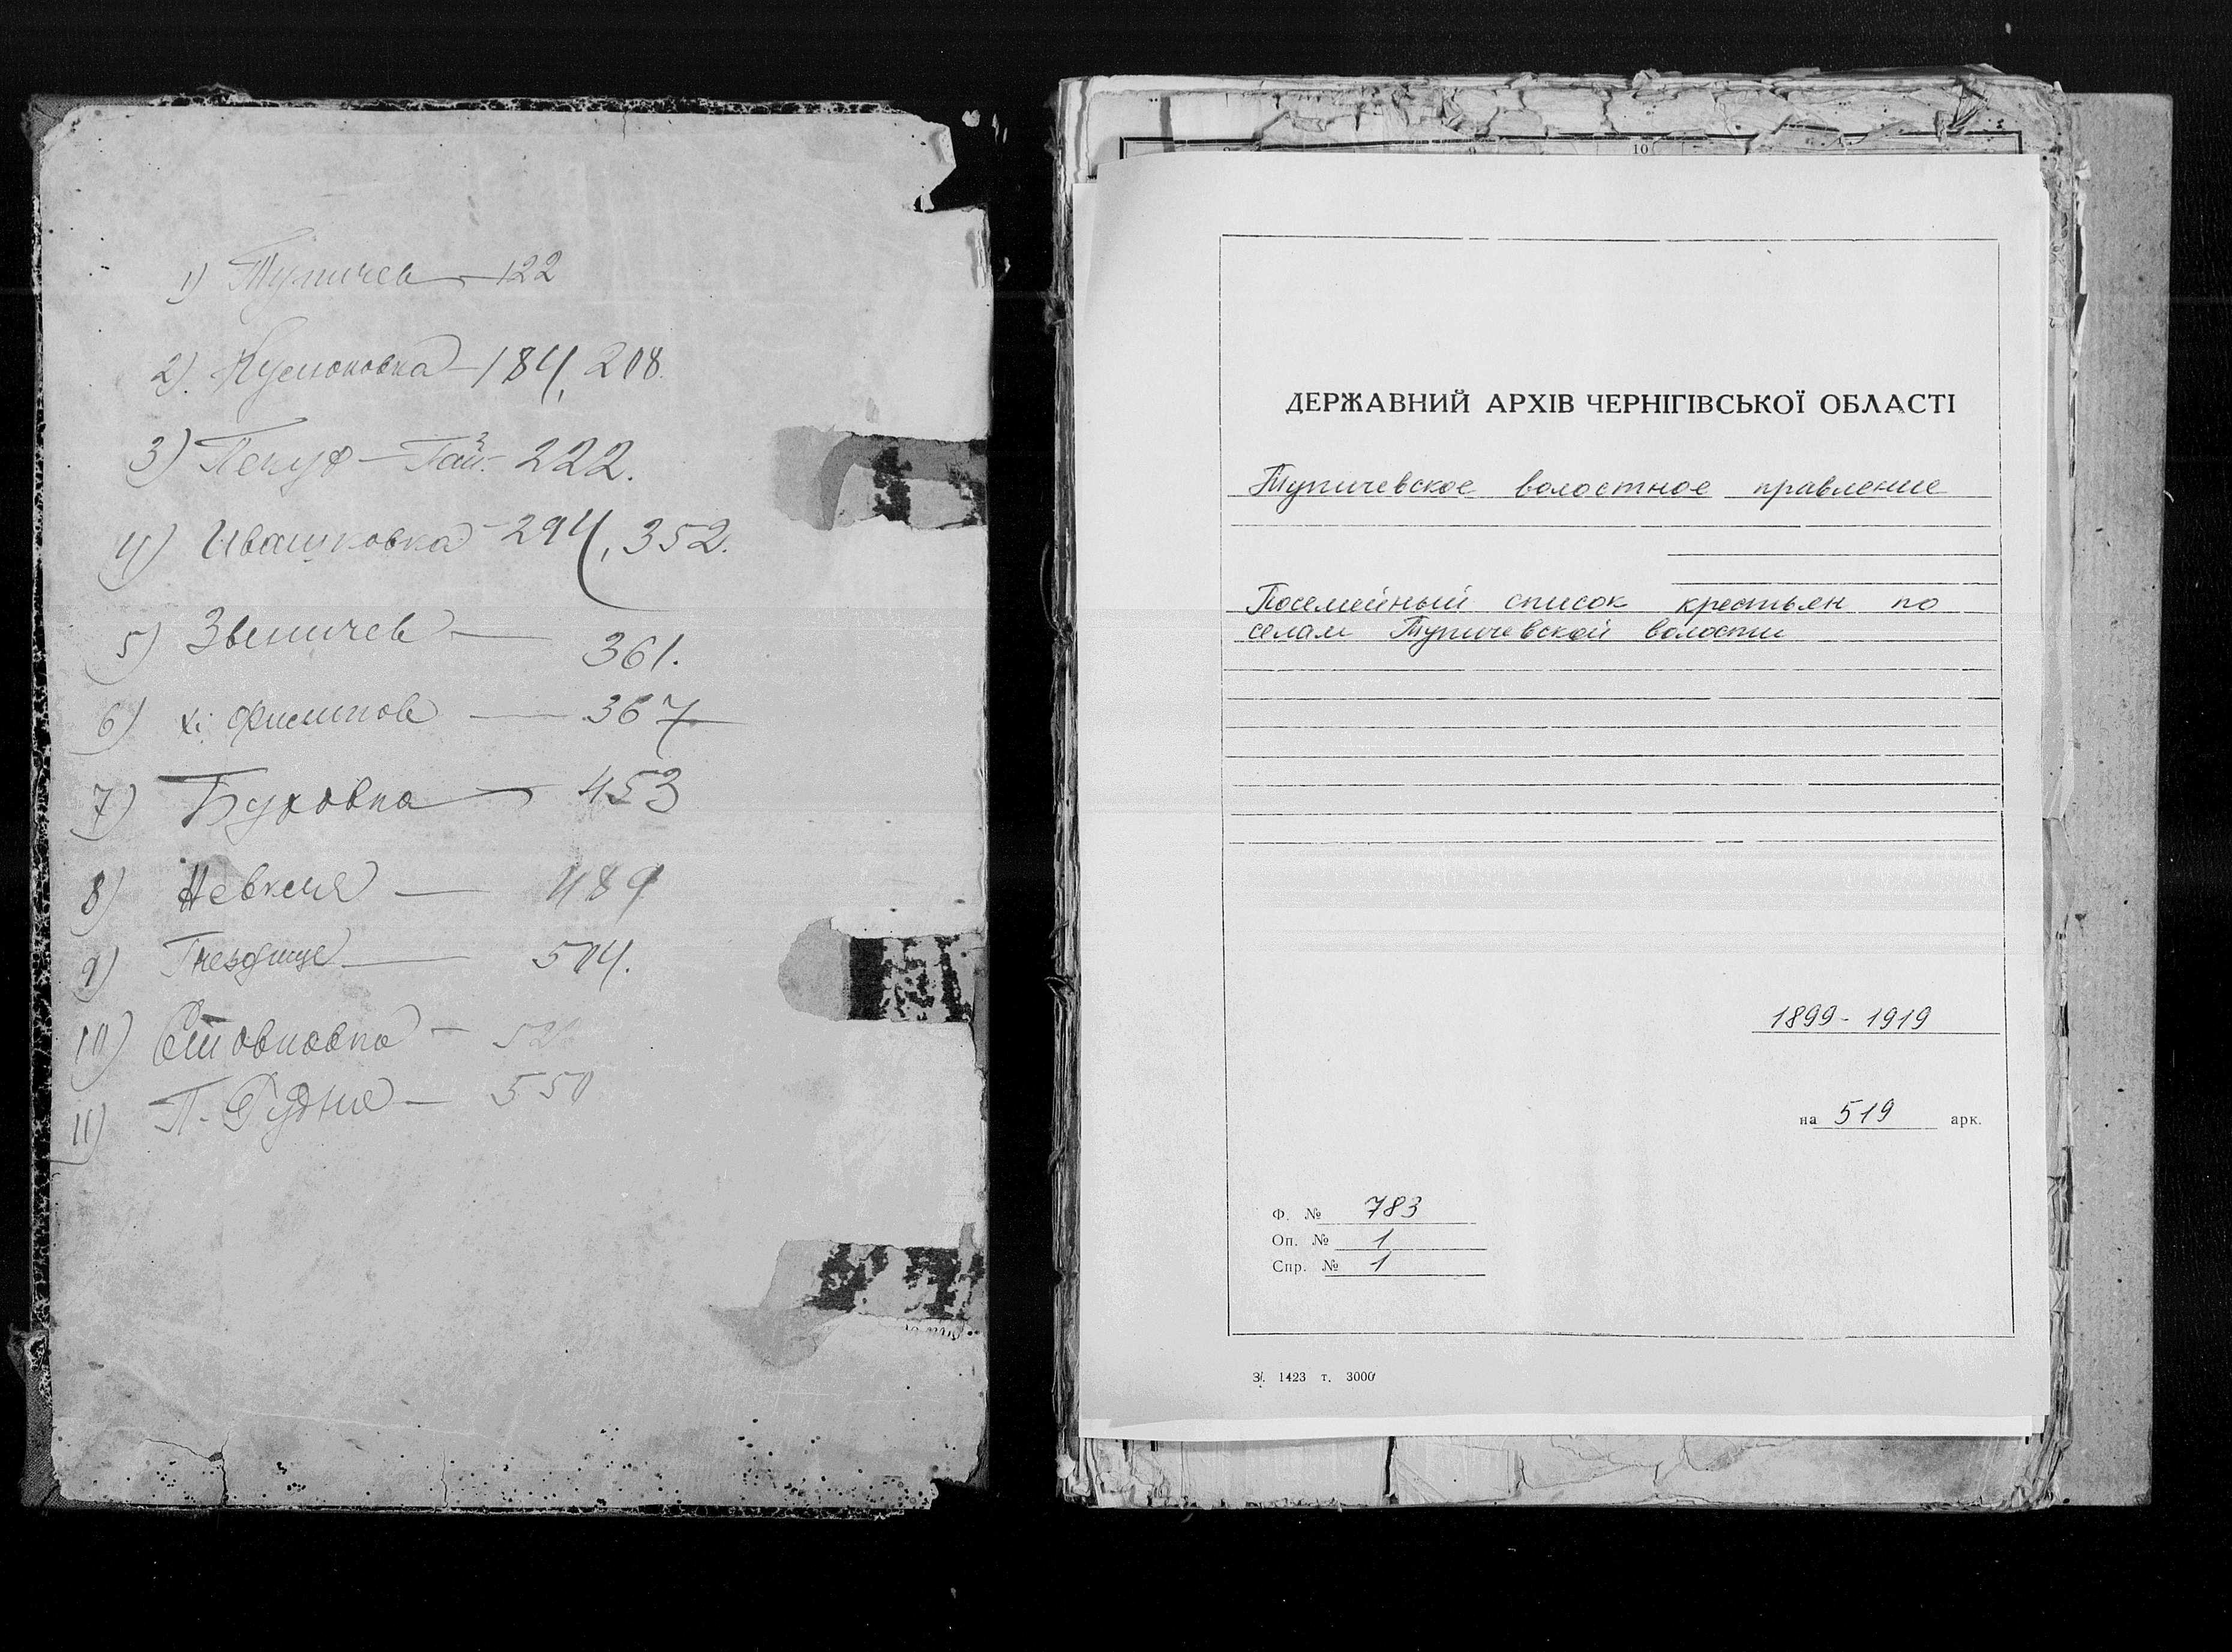 1) Тупичев — 122
2). Кусюковка — 184, 208.
3) Пекур — Гай. — 222.
4) Ивашковка — 294, 352.
5) Звеничев — 361.
6) х. Филипов — 367
7) Буровка — 453
8) Невкля — 489
9) Гнездище — 504.
10) Стовповка —
11) П. Рудня — 550
10
ДЕРЖАВНИЙ АРХІВ ЧЕРНІГІВСЬКОЇ ОБЛАСТІ
Тупичевское волостное правление
Посемейный список крестьян по
селам Тупичевской волости
1899 - 1919
на 519 арк.
Ф. № 783
Оп. № 1
Спр. № 1
З. 1423 т. 3000